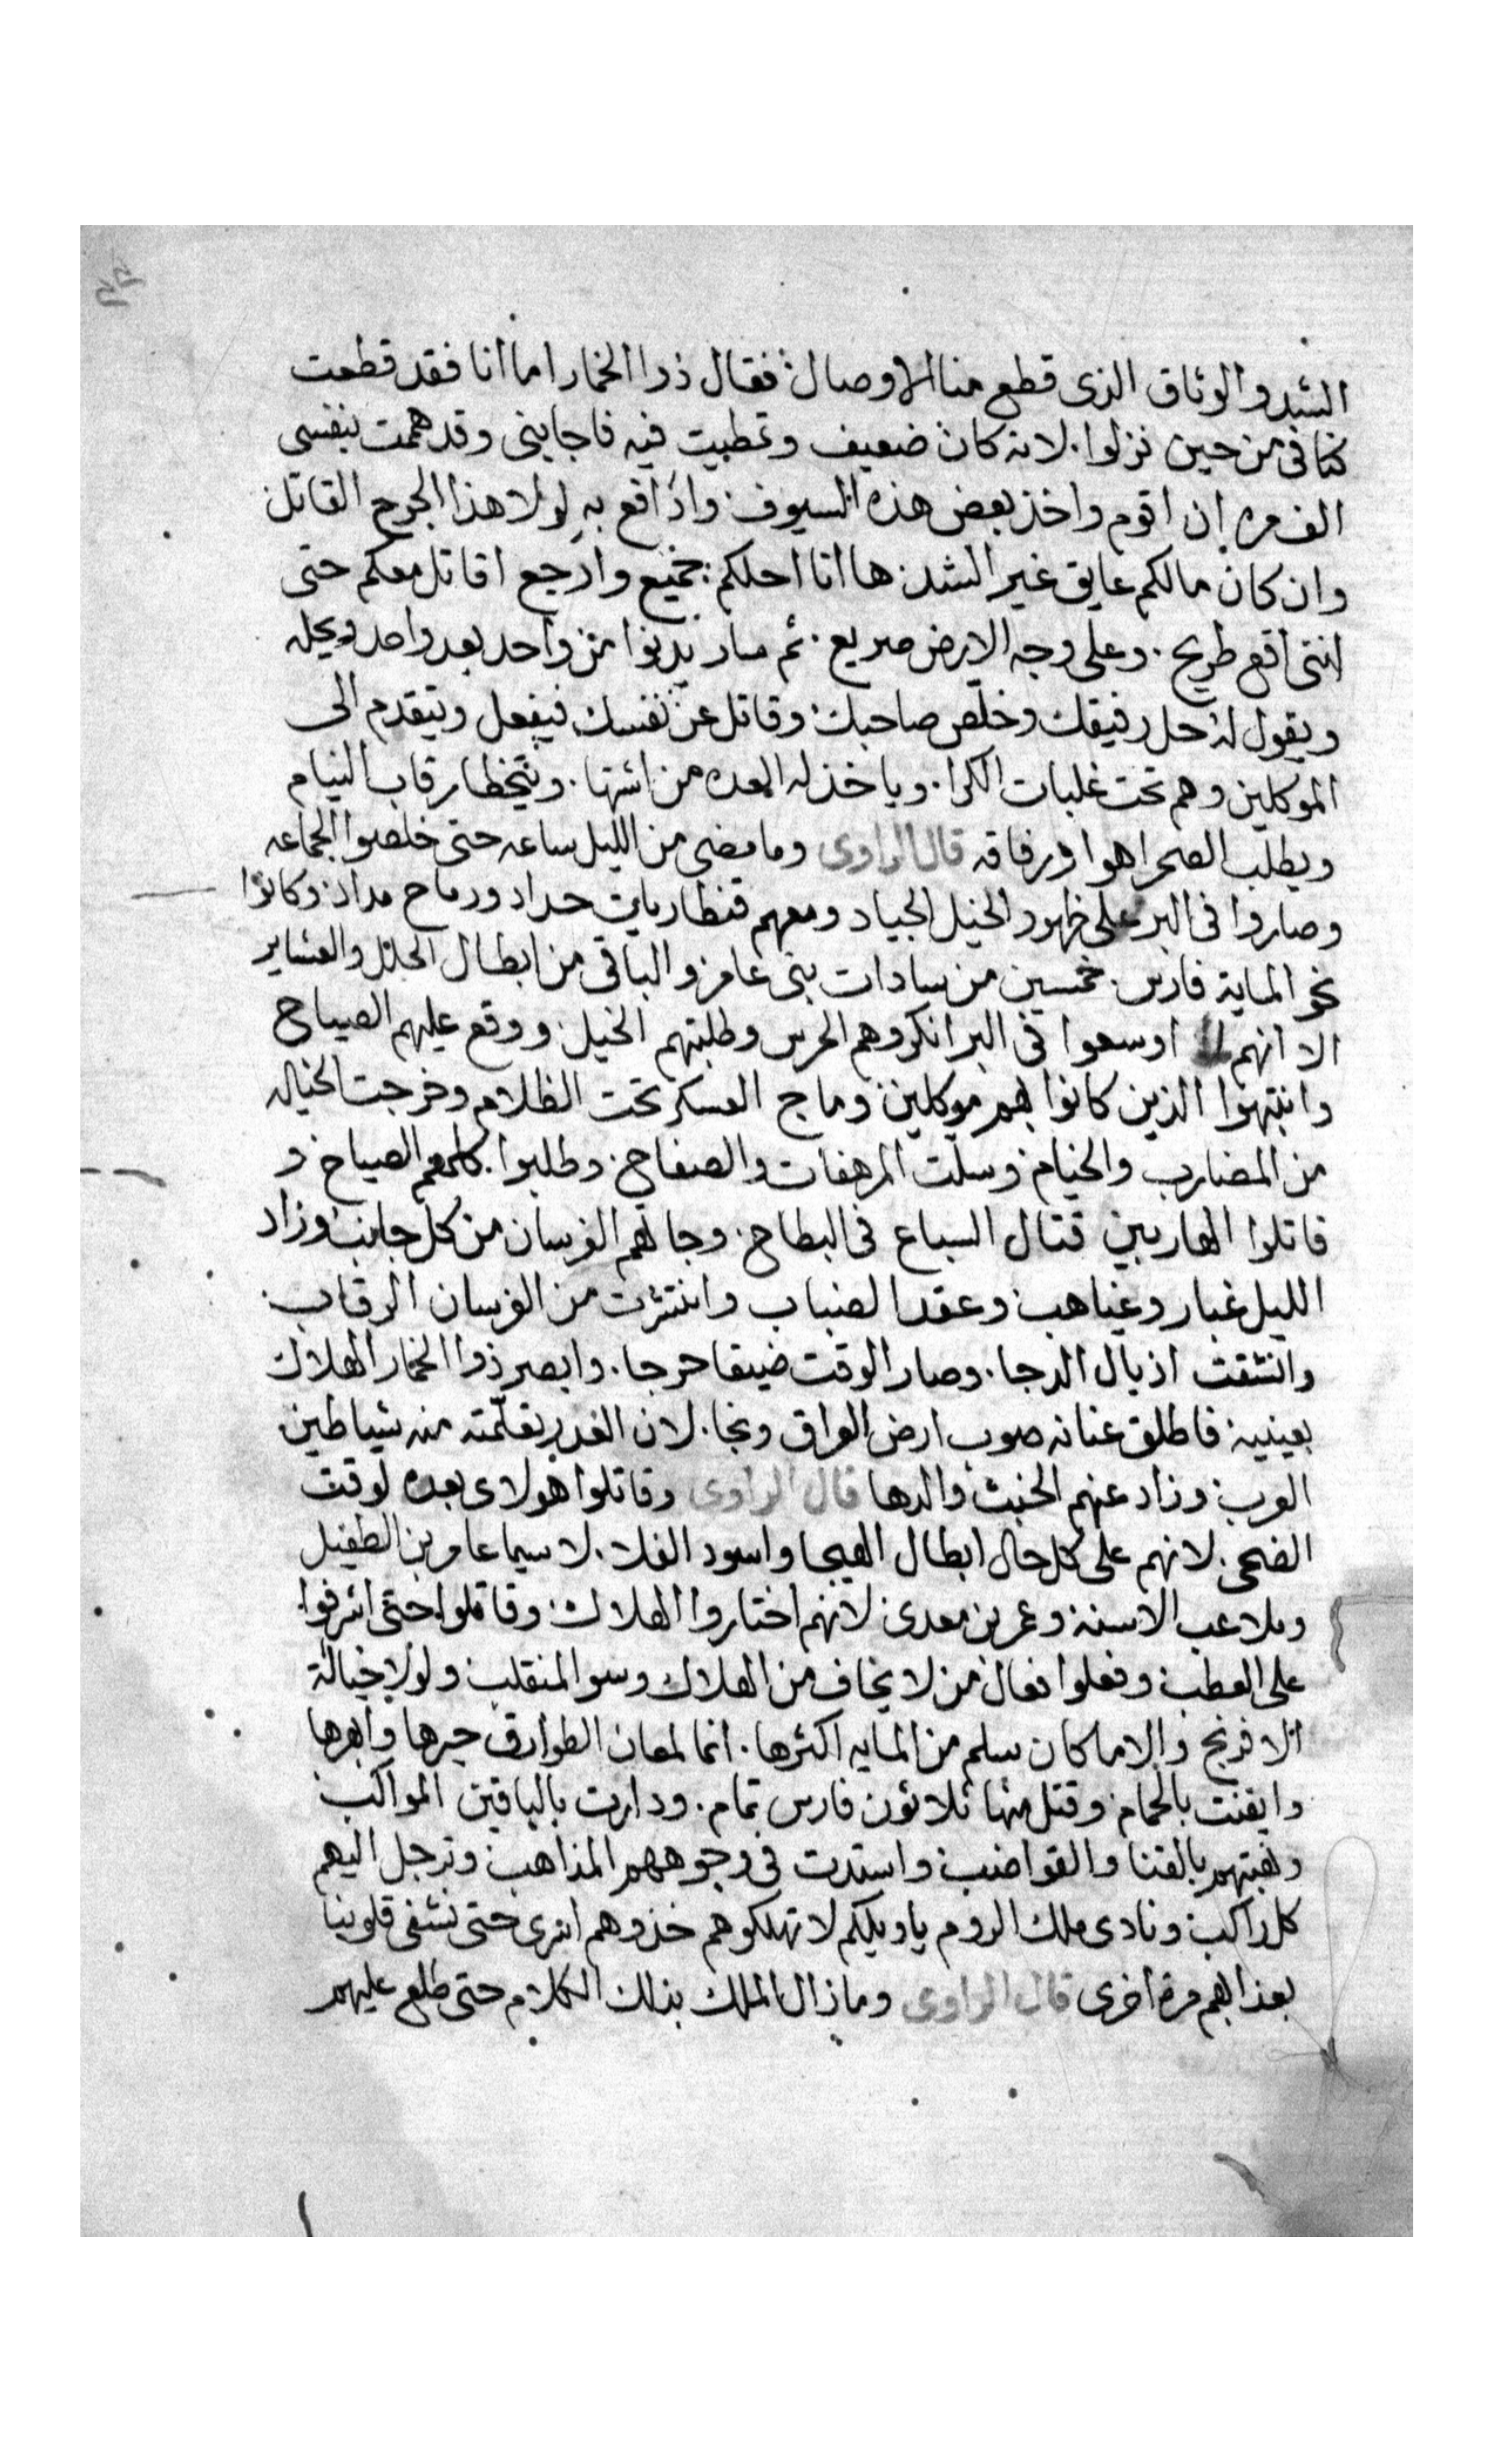 الشد والوثاق الذى قطع منا الاوصال فقال ذوا الخمار اما انا فقد قطعت
كتافى من حين نزلوا. لانه كان ضعيف وتمطيت فيه فاجابنى وقد هممت بنفسى
الف مره ان اقوم واخذ بعض هذه السيوف وادافع به لولا هذا الجرح القاتل
وان كان مالكم عايق غير الشد ها انا احلكم جميع وارجع اقاتل معكم حتى
اننى اقع طريح. وعلى وجه الارض صريع. ثم صار يدنوا من واحد بعد واحد ويحله
ويقول له حل رفيقك وخلص صاحبك وقاتل عن نفسك فيفعل ويتقدم الى
الموكلين وهم تحت غلبات الكرا. وياخذ له العده من اشتها. ويتخطا رقاب النيام
ويطلب الصحرا هوا ورفاقه قال الراوى وما مضى من الليل ساعه حتى خلصوا الجماعه
وصاروا فى البر على ظهور الخيل الجياد ومعهم قنطاريات حداد ورماح مداد وكانوا
نحو الماية فارس. خمسين من سادات بنى عامر والباقى من ابطال الحلل والعشاير
الا انهم لما اوسعوا فى البر انكروهم الحرس وطلبتهم الخيل ووقع عليهم الصياح
وانتبهوا الذين كانوا بهم موكلين وماج العسكر تحت الظلام وخرجت الخياله
من المضارب والخيام وسلت المرهفات والصفاح. وطلبوا كلهم الصياح و
قاتلوا الهاربين قتال السباع فى البطاح. وجا لهم الفرسان من كل جانب وزاد
الليل غبار وغياهب وعقد الضباب وانتثرت من الفرسان الرقاب.
وانشقت اذيال الدجا. وصار الوقت ضيقا حرجا. وابصر ذوا الخمار الهلاك
بعينيه فاطلق عنانه صوب ارض العراق ونجا. لان الغدر يتعلمته منه شياطين
العرب وزاد عنهم الخبث والدها قال الراوى وقاتلوا هولاى بعده لوقت
الضحى. لانهم على كل حال ابطال الهيجا واسود الفلا. لا سيما عامر بن الطفيل
وملاعب الاسنه وعمر بن معدى لانهم اختاروا الهلاك وقاتلوا حتى اشرفوا
على العطب وفعلوا فعال من لا يخاف من الهلاك وسو المنقلب ولولا خيالة
الافرنج والا ما كان سلم من المايه اكثرها. انما لمعان الطوارق حيرها وابهرها
وايقنت بالحمام وقتل منها ثلاثون فارس تمام. ودارت بالباقين المواكب
ونهبتهم بالقنا والقواضب واستدت فى وجوههم المذاهب وترجل اليهم
كل راكب ونادى ملك الروم يا ويلكم لا تهلكوهم خذوهم اسرى حتى نشفى قلوبنا
بعذابهم مرة اخرى قال الراوى وما زال الملك بذلك الكلام حتى طلع عليهم